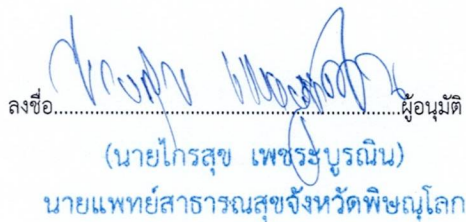 ลงชื่อ....................................................ผู้อนุมัติ
(นายไกรสุข เพชระบูรณิน)
นายแพทย์สาธารณสุขจังหวัดพิษณุโลก